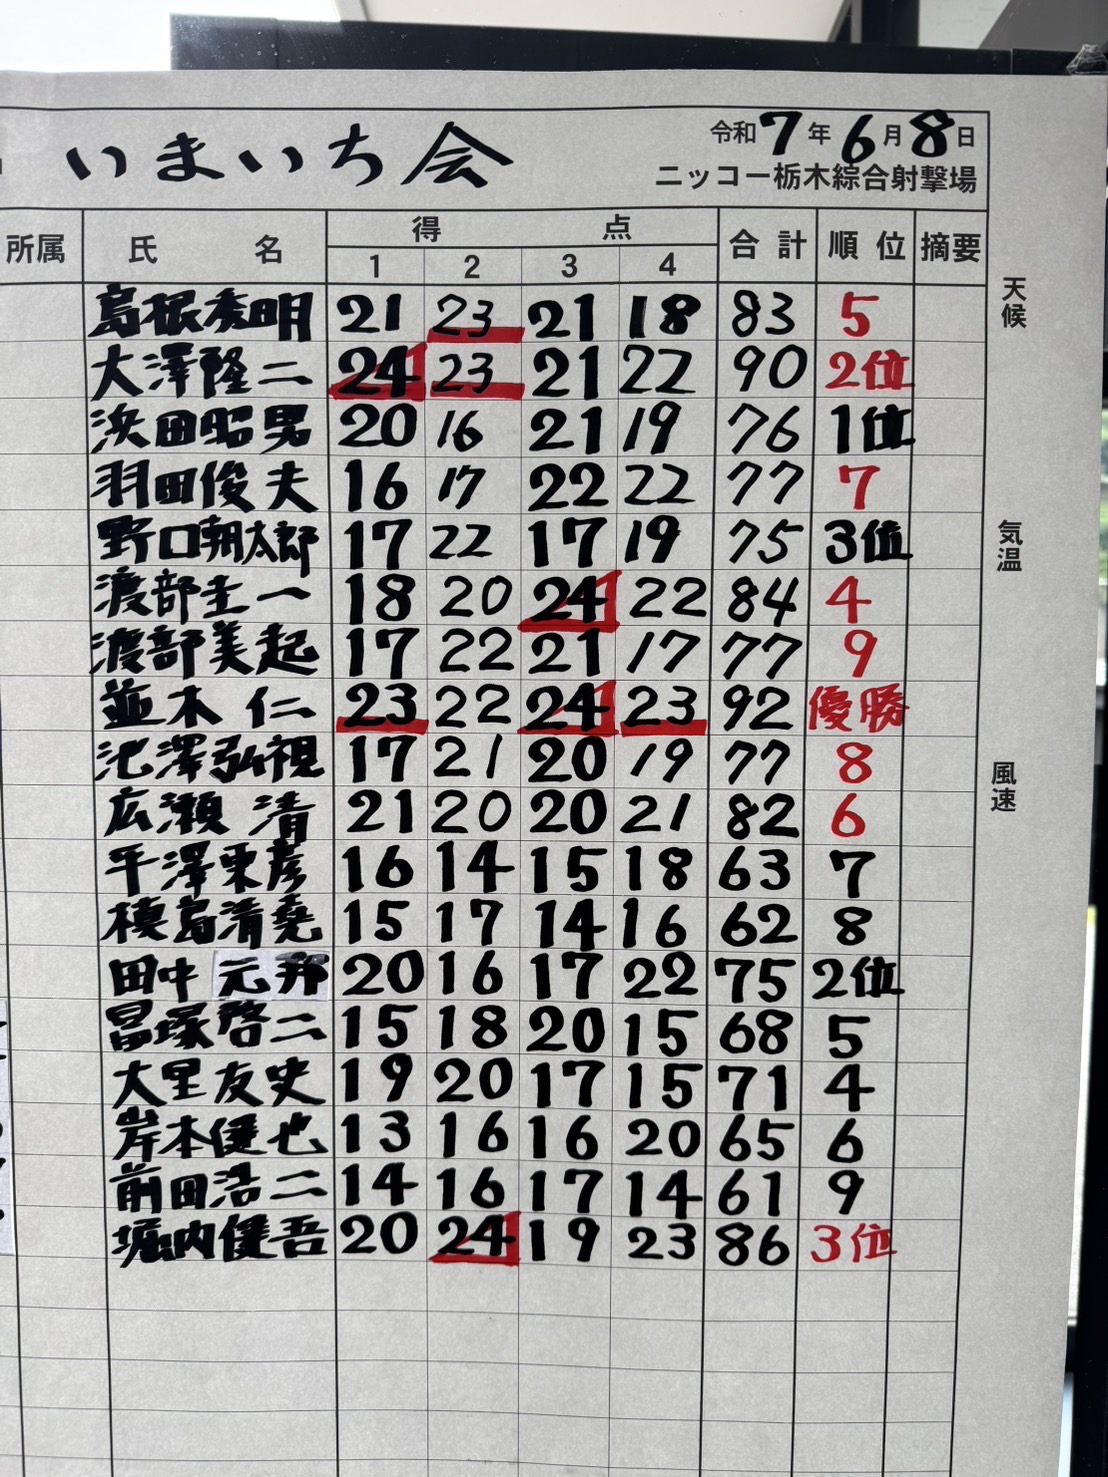 いまいち会
令和7年6月8日
ニッコー栃木綜合射撃場
所属 氏名 得点 合計 順位 摘要
1 2 3 4
島根秀明 21 23 21 18 83 5
大澤隆二 24 23 21 22 90 2位
浜田昭男 20 16 21 19 76 1位
羽田俊夫 16 17 22 22 77 7
野口朝太郎 17 22 17 19 75 3位
渡部圭一 18 20 24 22 84 4
渡部美起 17 22 21 17 77 9
並木仁 23 22 24 23 92 優勝
池澤弘視 17 21 20 19 77 8
広瀬清 21 20 20 21 82 6
平澤東彦 16 14 15 18 63 7
槙島清堯 15 17 14 16 62 8
田中元邦 20 16 17 22 75 2位
塚啓二 15 18 20 15 68 5
大里友史 19 20 17 15 71 4
岸本健也 13 16 16 20 65 6
前田浩二 14 16 17 14 61 9
堀内健吾 20 24 19 23 86 3位
天候
気温
風速